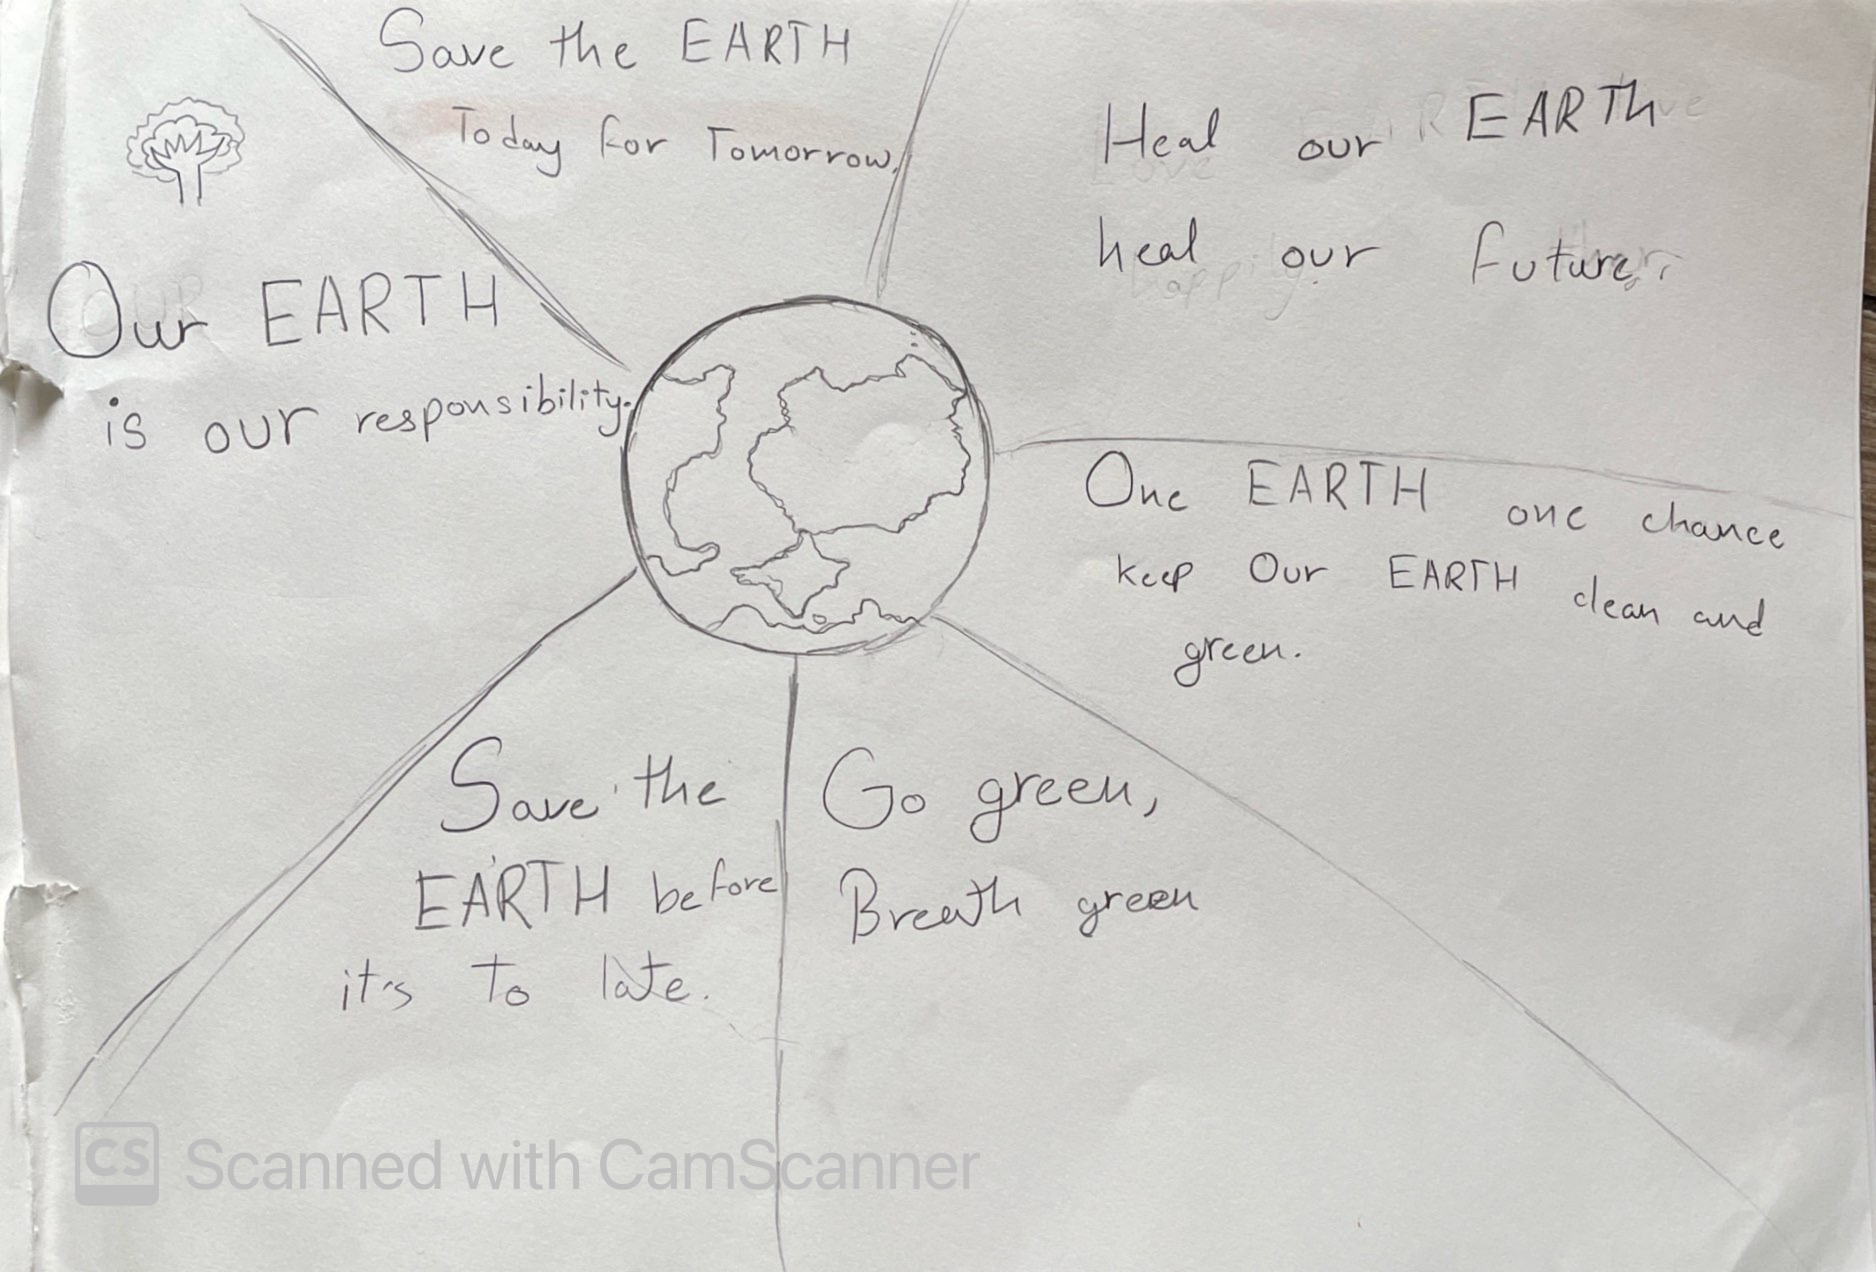 Save the EARTH
Today for Tomorrow.
Heal our EARTh
heal our future.
Our EARTH
is our responsibility.
One EARTH one chance
keep Our EARTH clean and
green.
Save the
EARTH before
it's To late.
Go green,
Breath green
CS Scanned with CamScanner